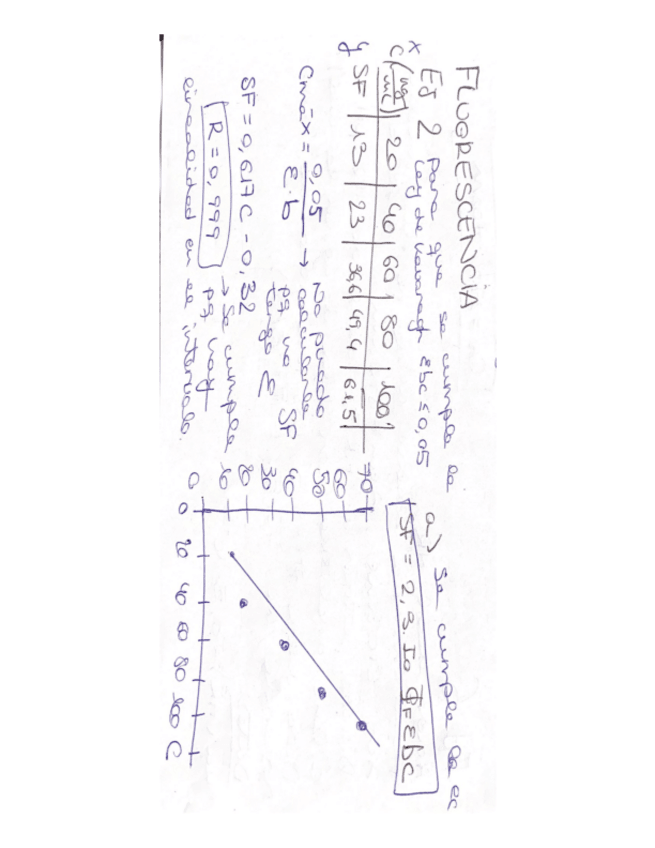 FLUORESCENCIA
Ej 2 Para que se cumpla la
ley de εbc ≤ 0,05
x
C (mg/mL) | 20 | 40 | 60 | 80 | 100
y SF | 13 | 23 | 36,6 | 49,4 | 61,5
Cmáx = 0,05 / ε·b → No puedo
calcularla
pq no
tengo ε
SF = 0,617C - 0,32
R = 0,999 → Se cumple
pq hay
linealidad en ese intervalo.
a) Se cumple la ec
SF = 2,3 · Io ΦF εbc
SF
70
60
50
40
30
20
10
0
0 20 40 60 80 100 C